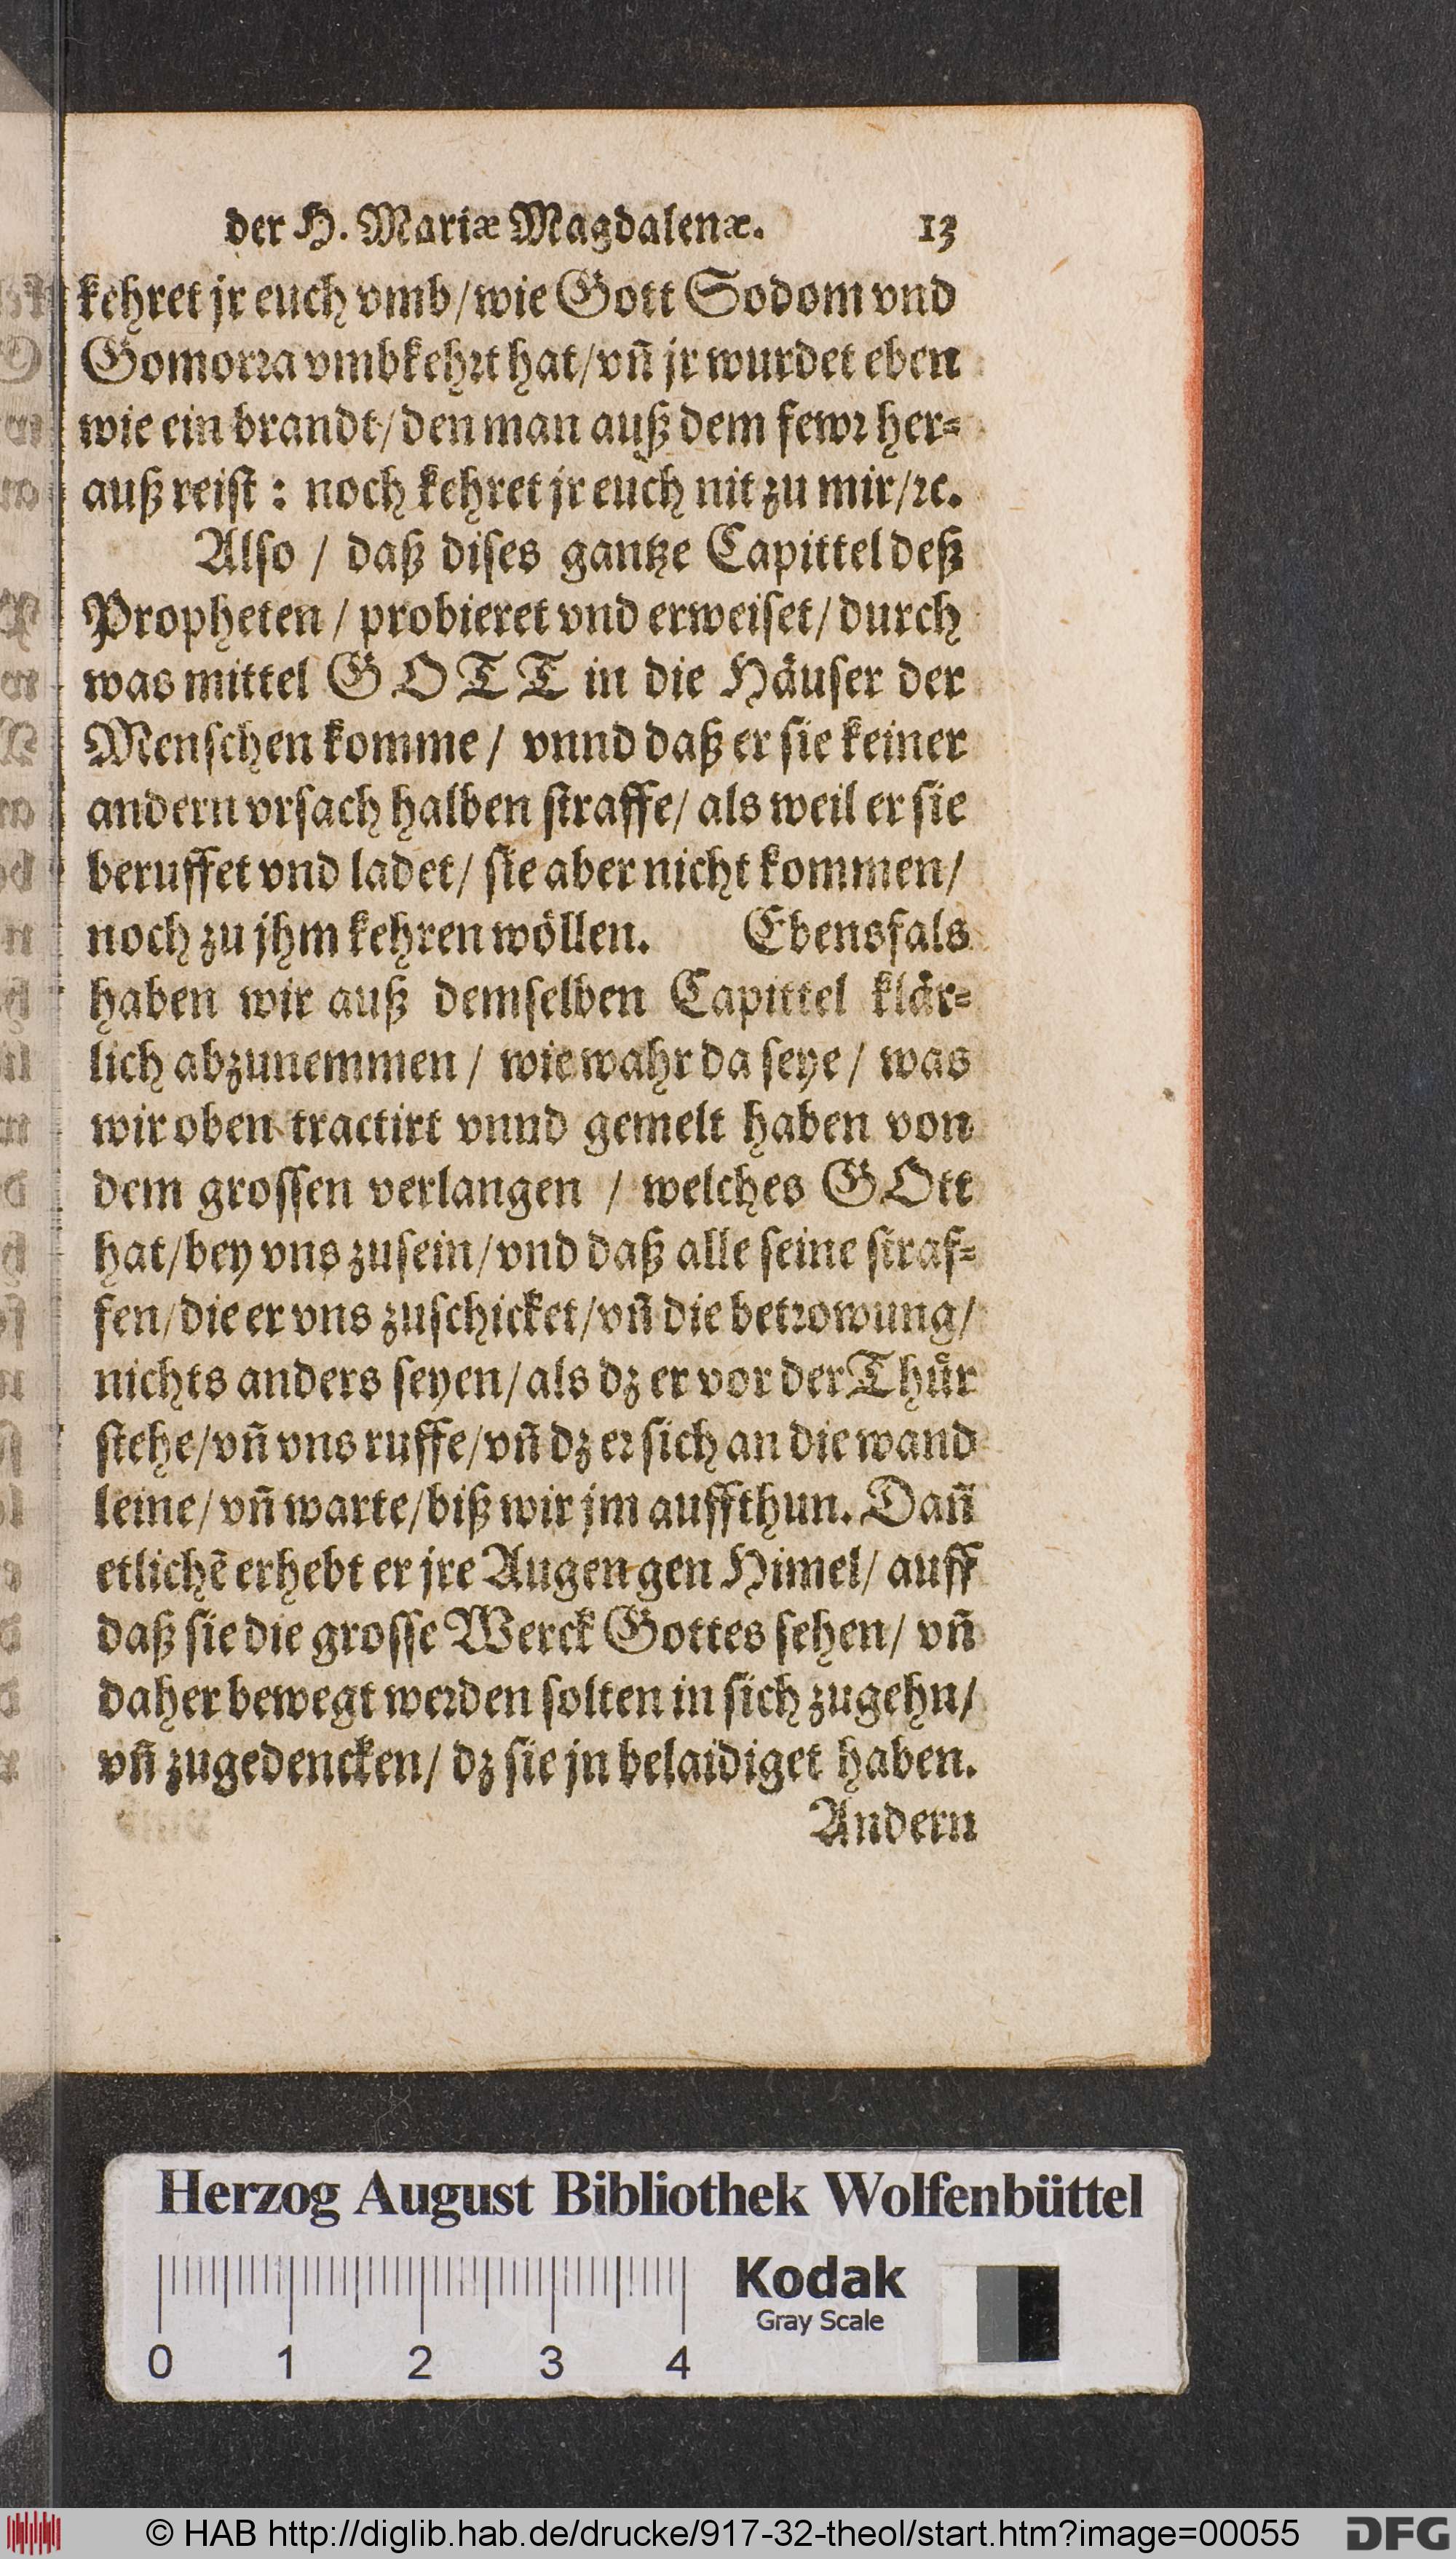 der H. Mariæ Magdalenæ. 13
kehret jr euch vmb/wie Gott Sodom vnd
Gomorꝛa vmbkehꝛt hat/vn̄ jr wurdet eben
wie ein brandt/den man auß dem fewꝛ her⸗
auß reiſt : noch kehret jr euch nit zu mir/ꝛc.
Alſo / daß diſes gantze Capittel deß
Propheten / probieret vnd erweiſet/ durch
was mittel GOTT in die Häuſer der
Menſchen komme / vnnd daß er ſie keiner
andern vrſach halben ſtraffe/ als weil er ſie
beruffet vnd ladet/ ſie aber nicht kommen/
noch zu jhm kehren wöllen. Ebensfals
haben wir auß demſelben Capittel klär⸗
lich abzunemmen / wie wahr da ſeye / was
wir oben tractirt vnnd gemelt haben von
dem groſſen verlangen / welches GOtt
hat/bey vns zuſein/vnd daß alle ſeine ſtraf⸗
fen/die er vns zuſchicket/vn̄ die betꝛowung/
nichts anders ſeyen/als dz er vor der Thür
ſtehe/vn̄ vns ruffe/vn̄ dz eꝛ ſich an die wand
leine/vn̄ warte/biß wir jm auffthun. Dan̄
etlichē erhebt er jre Augen gen Himel/ auff
daß ſie die groſſe Werck Gottes ſehen/ vn̄
daher bewegt weꝛden ſolten in ſich zugehn/
vn̄ zugedencken/ dz ſie jn belaidiget haben.
Andern
Herzog August Bibliothek Wolfenbüttel
Kodak
Gray Scale
0 1 2 3 4
© HAB http://diglib.hab.de/drucke/917-32-theol/start.htm?image=00055
DFG